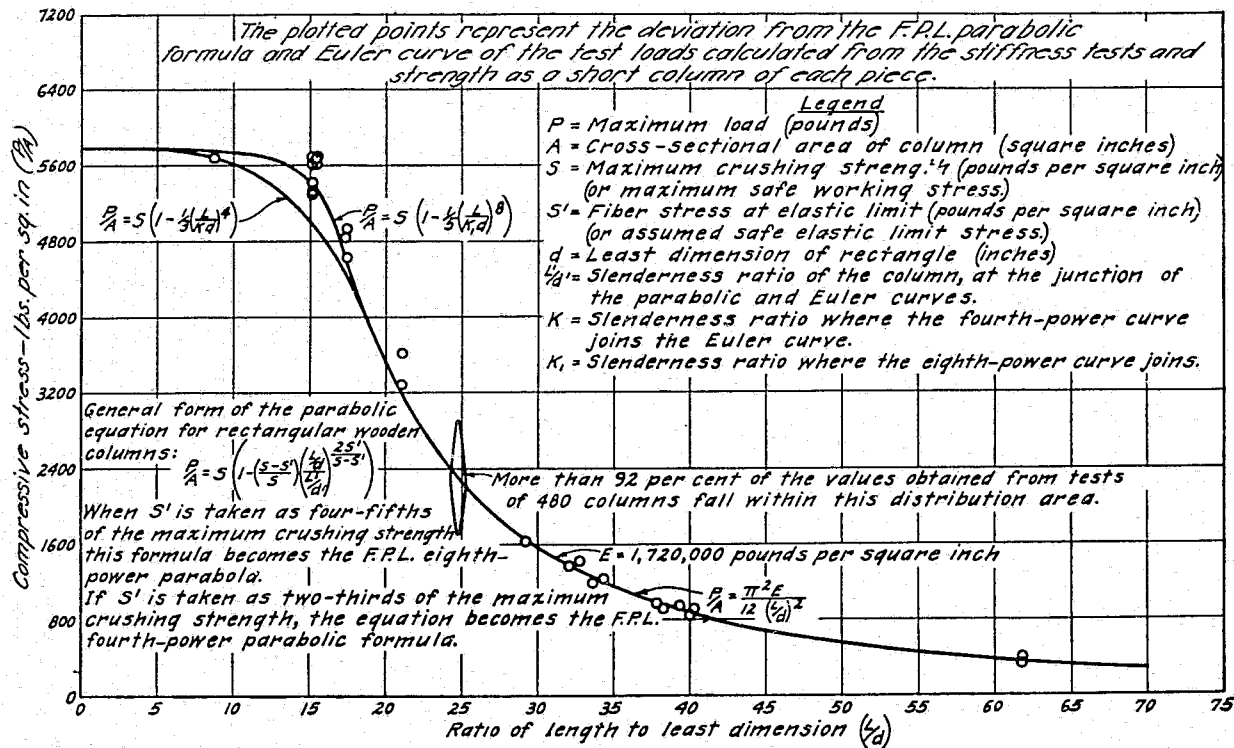 The plotted points represent the deviation from the F.P.L. parabolic
formula and Euler curve of the test loads calculated from the stiffness tests and
strength as a short column of each piece.
Legend
P = Maximum load (pounds)
A = Cross-sectional area of column (square inches)
S = Maximum crushing strength (pounds per square inch)
(or maximum safe working stress.)
S' = Fiber stress at elastic limit (pounds per square inch)
(or assumed safe elastic limit stress.)
d = Least dimension of rectangle (inches)
L'/d' = Slenderness ratio of the column, at the junction of
the parabolic and Euler curves.
K = Slenderness ratio where the fourth-power curve
joins the Euler curve.
K₁ = Slenderness ratio where the eighth-power curve joins.
P/A = S (1 - 1/3 (L/Kd)⁴)
P/A = S (1 - 1/5 (L/K₁d)⁸)
General form of the parabolic
equation for rectangular wooden
columns:
P/A = S (1 - (S-S'/S) (L/d / L'/d')^(2S'/S-S'))
When S' is taken as four-fifths
of the maximum crushing strength
this formula becomes the F.P.L. eighth-
power parabola.
If S' is taken as two-thirds of the maximum
crushing strength, the equation becomes the F.P.L.
fourth-power parabolic formula.
More than 92 per cent of the values obtained from tests
of 480 columns fall within this distribution area.
E = 1,720,000 pounds per square inch
P/A = π²E / 12 (L/d)²
Compressive stress—lbs. per sq. in (P/A)
7200
6400
5600
4800
4000
3200
2400
1600
800
0
0 5 10 15 20 25 30 35 40 45 50 55 60 65 70 75
Ratio of length to least dimension (L/d)